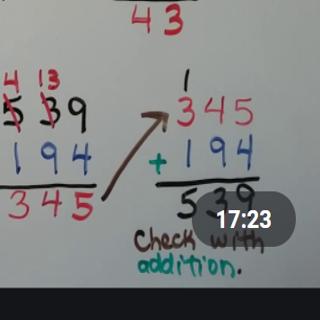 43
4 13
539
194
345
1
345
+ 194
539
17:23
Check with
addition.